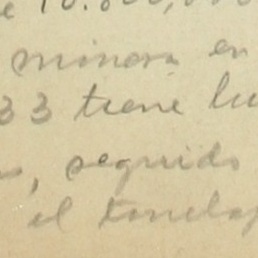 10.800,000
minera en
33 tiene lu
, seguido
el tonelaj